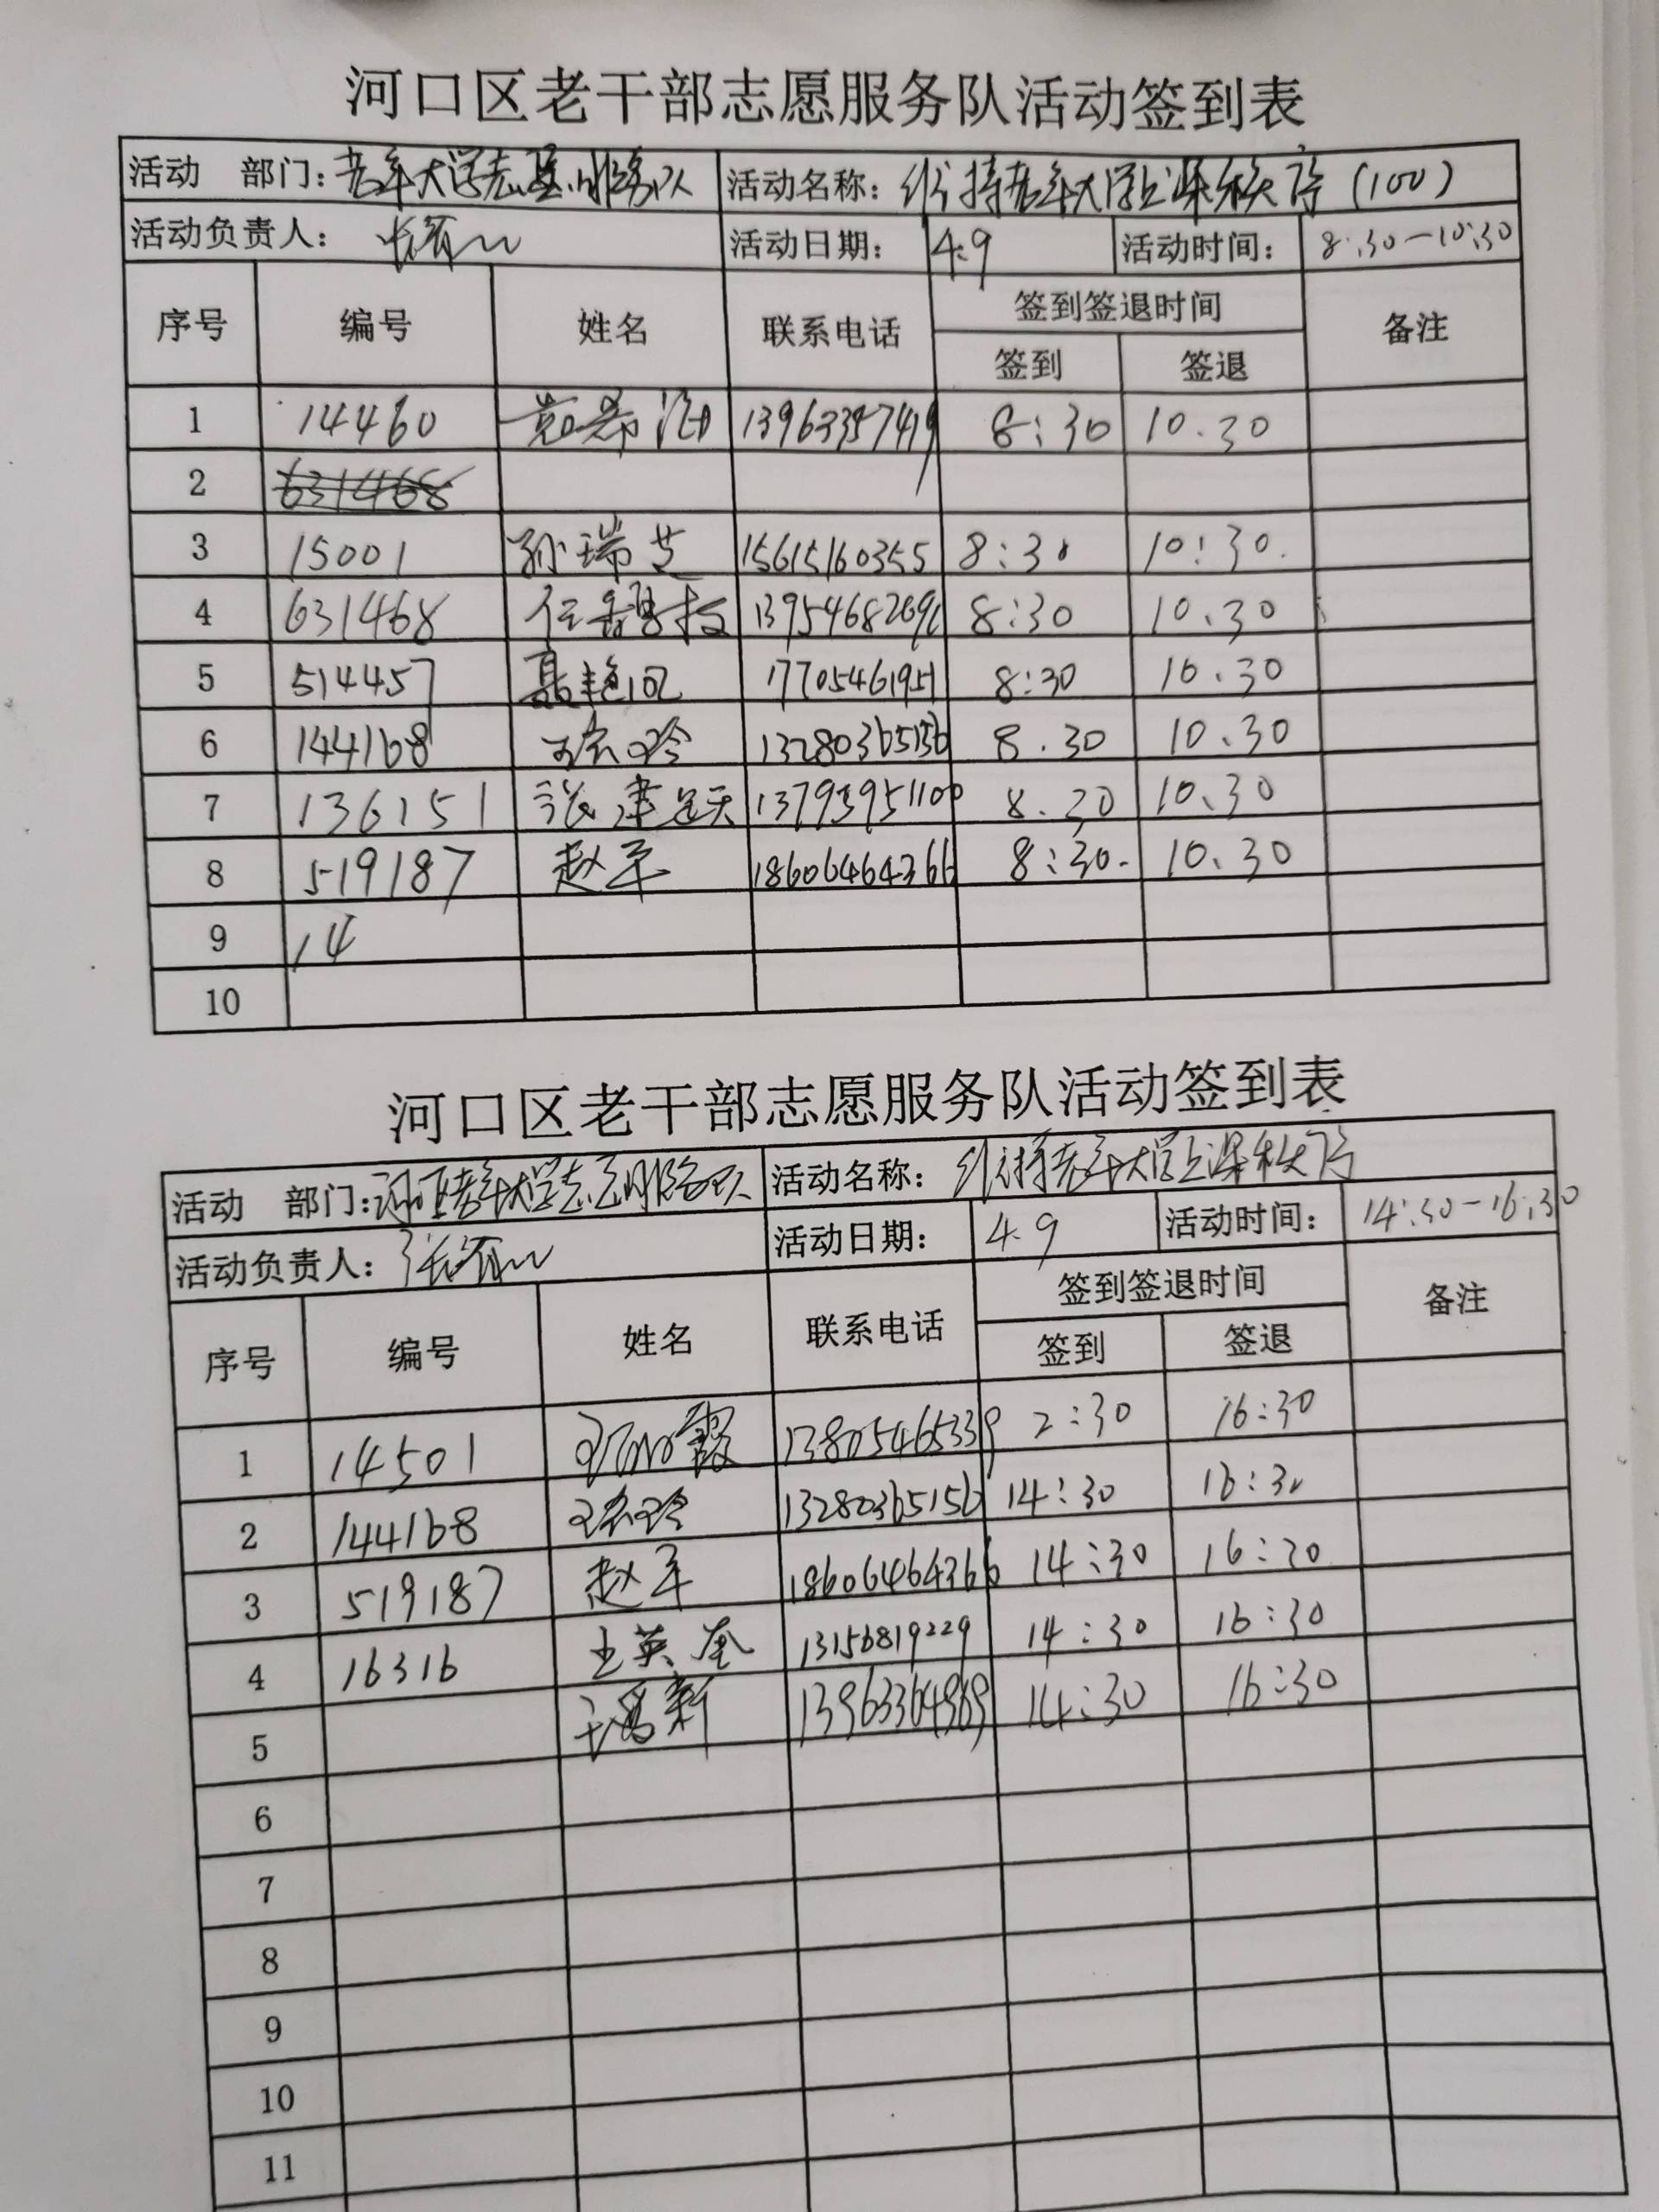 河口区老干部志愿服务队活动签到表
活动 部门：老年大学志愿服务队 活动名称：维持老年大学上课秩序（100）
活动负责人： 活动日期：4.9 活动时间：8:30—10:30
序号 编号 姓名 联系电话 签到签退时间 备注
签到 签退
1 14460 8:30 10.30
2
3 15001 孙瑞芝 15615160355 8:30 10:30.
4 631468 8:30 10.30
5 514457 17705461951 8:30 10.30
6 144168 13280365156 8.30 10.30
7 136151 13793951100 10.30
8 519187 赵军 18606464366 8:30. 10.30
9 14
10
河口区老干部志愿服务队活动签到表
活动 部门：老年大学志愿服务队 活动名称：维持老年大学上课秩序
活动负责人： 活动日期：4.9 活动时间：14:30—16:30
序号 编号 姓名 联系电话 签到签退时间 备注
签到 签退
1 14501 13805465339 2:30 16:30
2 144168 13280365156 14:30 16:30
3 519187 赵军 18606464366 14:30
4 16316 王英奎 13156819229 14:30 16:30
5 13963364969 14:30 16:30
6
7
8
9
10
11